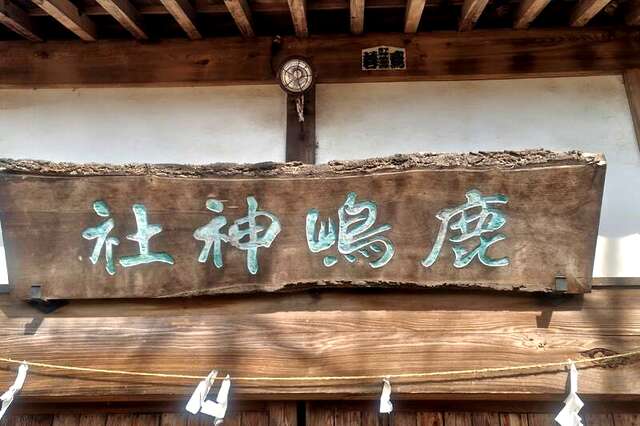 鹿嶋神社